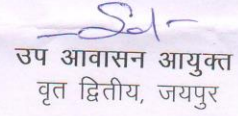 Sd/-
उप आवासन आयुक्त
वृत द्वितीय, जयपुर